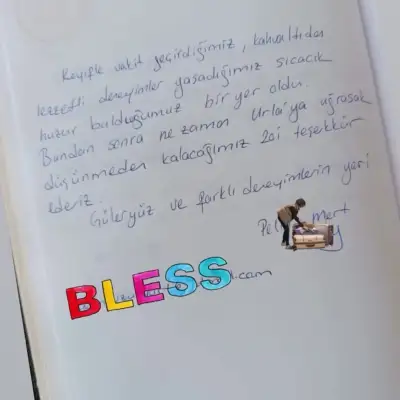 Keyifle vakit geçirdiğimiz, kahvaltıdan
lezzetli deneyimler yaşadığımız sıcacık
huzur bulduğumuz bir yer oldu.
Bundan sonra ne zaman Urla'ya uğrasak
düşünmeden kalacağımız 2ci teşekkür
ederiz.
Güleryüz ve farklı deneyimlerin yeri
mert
BLESS
.com